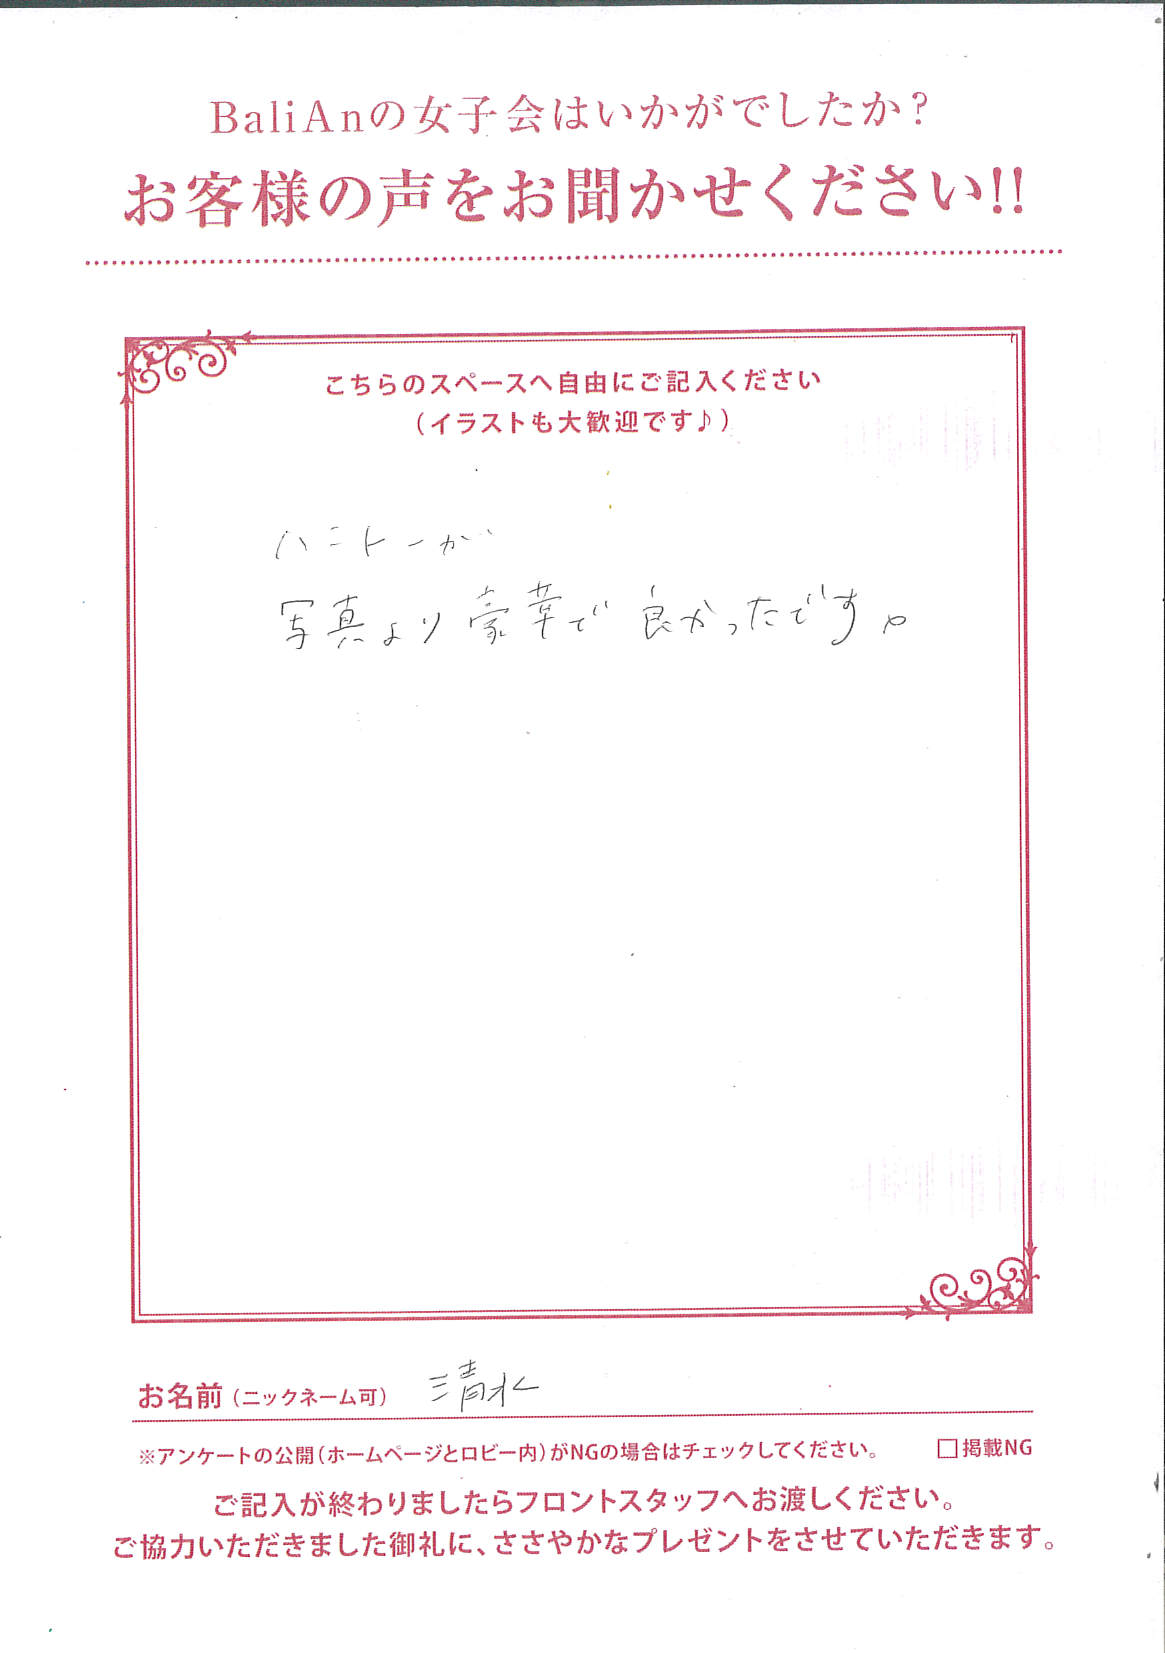 BaliAnの女子会はいかがでしたか？
お客様の声をお聞かせください!!
こちらのスペースへ自由にご記入ください
（イラストも大歓迎です♪）
ハニトーが
写真より豪華で良かったです。
お名前（ニックネーム可） 清水
※アンケートの公開（ホームページとロビー内）がNGの場合はチェックしてください。 □掲載NG
ご記入が終わりましたらフロントスタッフへお渡しください。
ご協力いただきました御礼に、ささやかなプレゼントをさせていただきます。